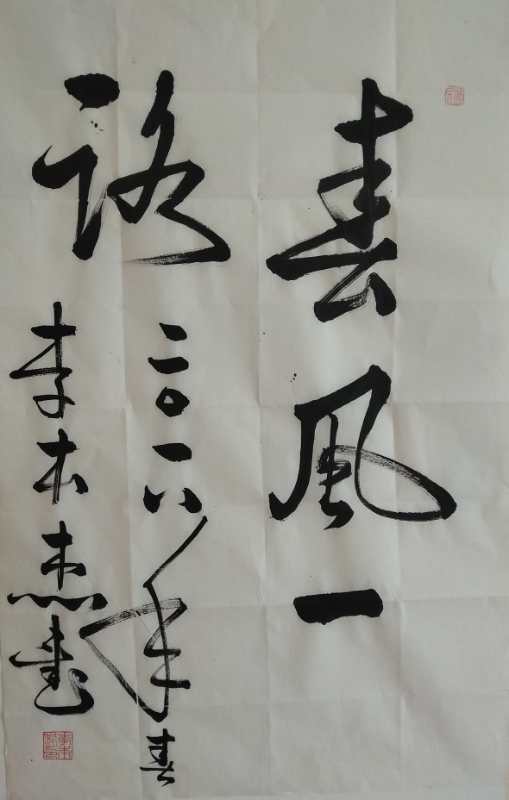 春風一
路
二〇一八年春
李木杰書